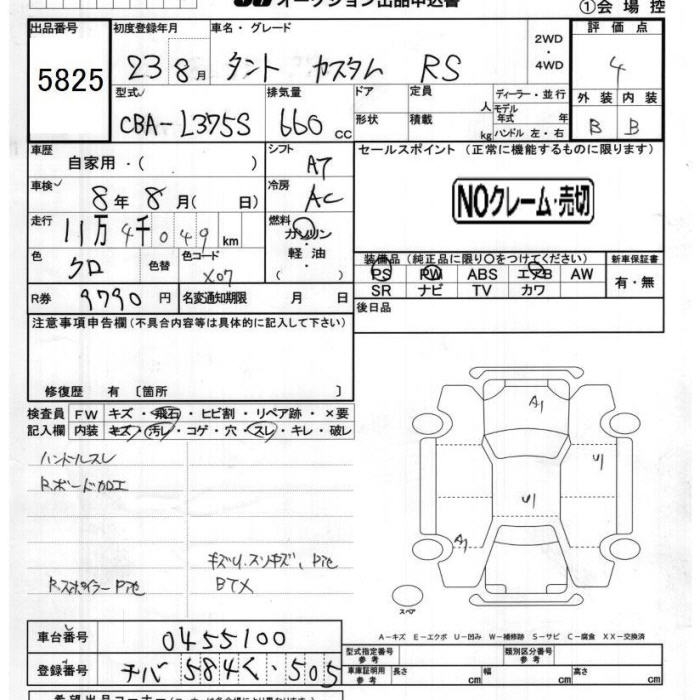 オークション出品申込書
①会場控
出品番号 初度登録年月 車名・グレード 2WD・4WD 評価点
5825 23 8月 タント カスタム RS 4
型式 排気量 ドア 定員 人 ディーラー・並行 外装 内装
CBA-L375S 660 cc 形状 積載 kg モデル年式 年 ハンドル 左・右 B B
車歴 シフト セールスポイント (正常に機能するものに限ります)
自家用・( ) AT
車検 冷房
8年 8月( 日) AC NOクレーム・売切
走行 燃料
11万 4千 049 km ガソリン・軽油 ( )
色 色替 色コード 装備品(純正品に限り○をつけてください) 新車保証書
クロ X07 PS PW ABS エアB AW 有・無
SR ナビ TV カワ
R券 9790 円 名変通知期限 月 日 後日品
注意事項申告欄(不具合内容等は具体的に記入して下さい)
修復歴 有 〔箇所 〕
検査員 FW キズ・飛石・ヒビ割・リペア跡・×要
記入欄 内装 キズ・汚レ・コゲ・穴・スレ・キレ・破レ
ハンドルスレ
R.ボード加工
キズU.スリキズ、
R.スポイラー
BTX
A1
U1
U1
A1
スペア
A-キズ E-エクボ U-凹み W-補修跡 S-サビ C-腐食 XX-交換済
車台番号 0455100
型式指定番号 参考 類別区分番号 参考
登録番号 チバ 584く・505
車庫証明用 参考 長さ cm 幅 cm 高さ cm